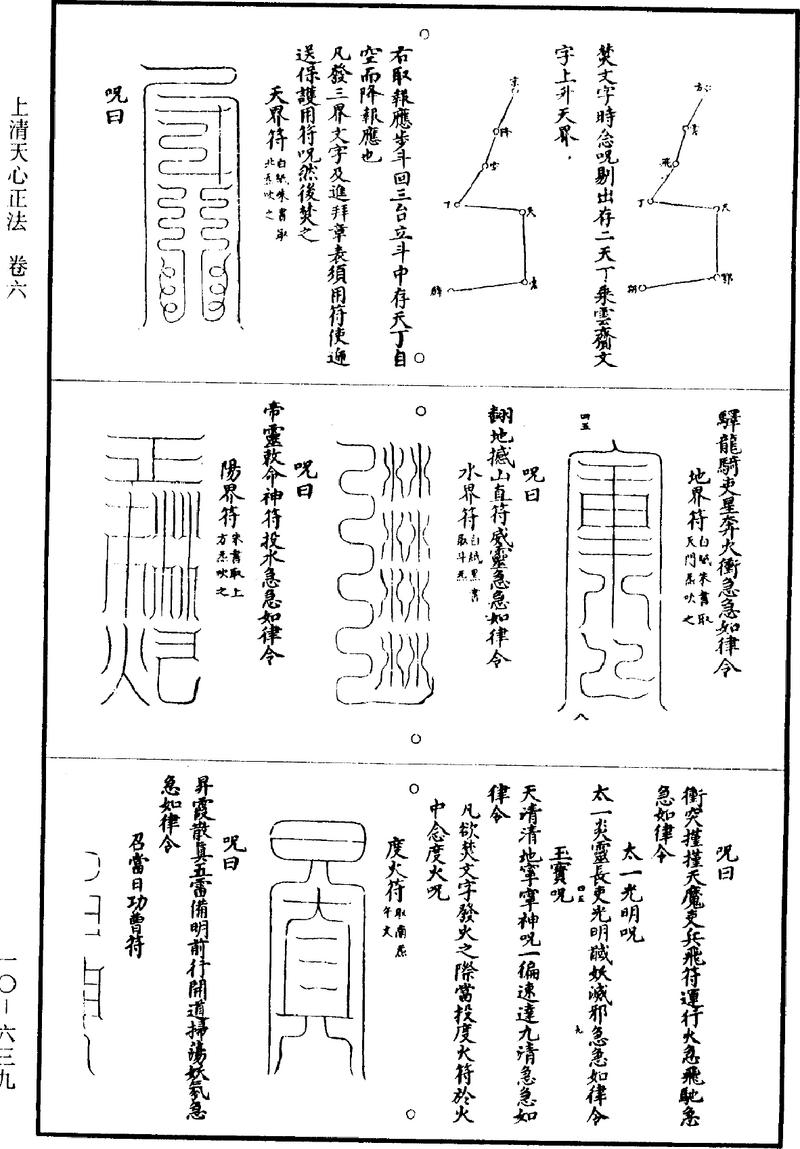 上清天心正法 卷六
焚文字時念呪剔出存二天丁乘雲齎文
字上升天界
右取報應步斗回三台立斗中存天丁自
空而降報應也
凡發三界文字及進拜章表須用符使遞
送保護用符呪然後焚之
天界符 白紙朱書取北炁吹之
呪曰
驛龍騎吏星奔火衝急急如律令
地界符 白紙朱書取天門炁吹之
四五
八
呪曰
翻地撼山直符威靈急急如律令
水界符 白紙黑書
呪曰
帝靈敕命神符投水急急如律令
陽界符 朱書取上方炁吹之
呪曰
衝突撞撞天魔吏兵飛符運行火急飛馳急
急如律令
太一光明呪
太一炎靈長吏光明馘妖滅邪急急如律令
四五
九
玉寶呪
天清清地寧寧神呪一徧速達九清急急如
律令
凡欲焚文字發火之際當投度火符於火
中念度火呪
度火符 取南炁午文
呪曰
昇霞散真五雷備明前行開道掃蕩妖氛急
急如律令
召當日功曹符
一〇—六三九